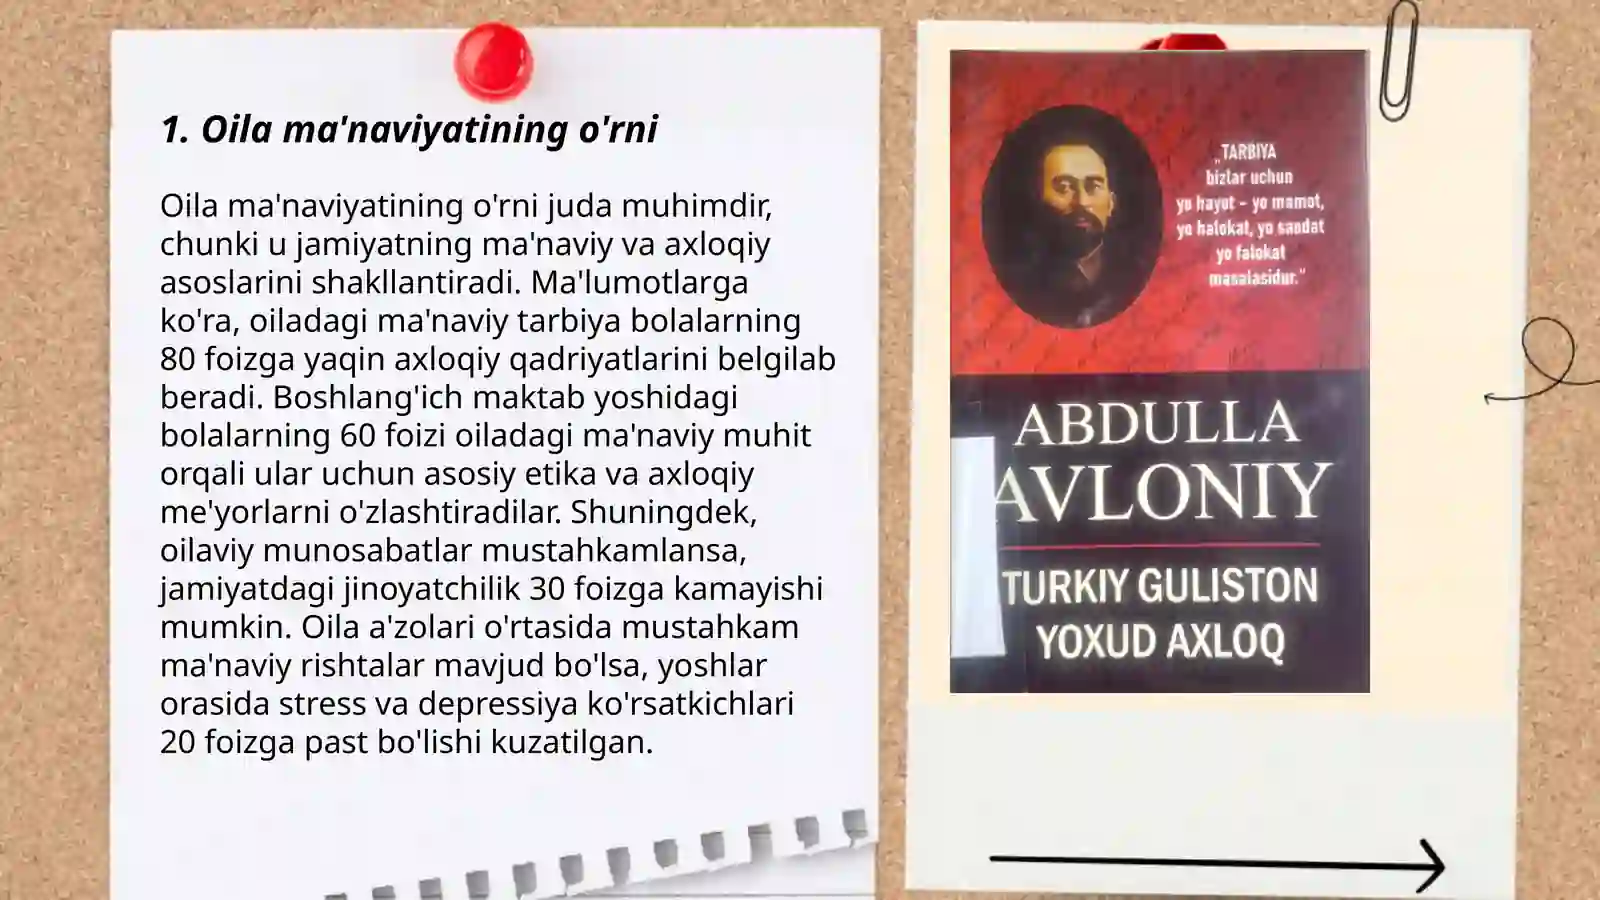 1. Oila ma'naviyatining o'rni
Oila ma'naviyatining o'rni juda muhimdir,
chunki u jamiyatning ma'naviy va axloqiy
asoslarini shakllantiradi. Ma'lumotlarga
ko'ra, oiladagi ma'naviy tarbiya bolalarning
80 foizga yaqin axloqiy qadriyatlarini belgilab
beradi. Boshlang'ich maktab yoshidagi
bolalarning 60 foizi oiladagi ma'naviy muhit
orqali ular uchun asosiy etika va axloqiy
me'yorlarni o'zlashtiradilar. Shuningdek,
oilaviy munosabatlar mustahkamlansa,
jamiyatdagi jinoyatchilik 30 foizga kamayishi
mumkin. Oila a'zolari o'rtasida mustahkam
ma'naviy rishtalar mavjud bo'lsa, yoshlar
orasida stress va depressiya ko'rsatkichlari
20 foizga past bo'lishi kuzatilgan.
„TARBIYA
bizlar uchun
yo hayot – yo mamot,
yo halokat, yo saodat
yo falokat
masalasidur."
ABDULLA
AVLONIY
TURKIY GULISTON
YOXUD AXLOQ